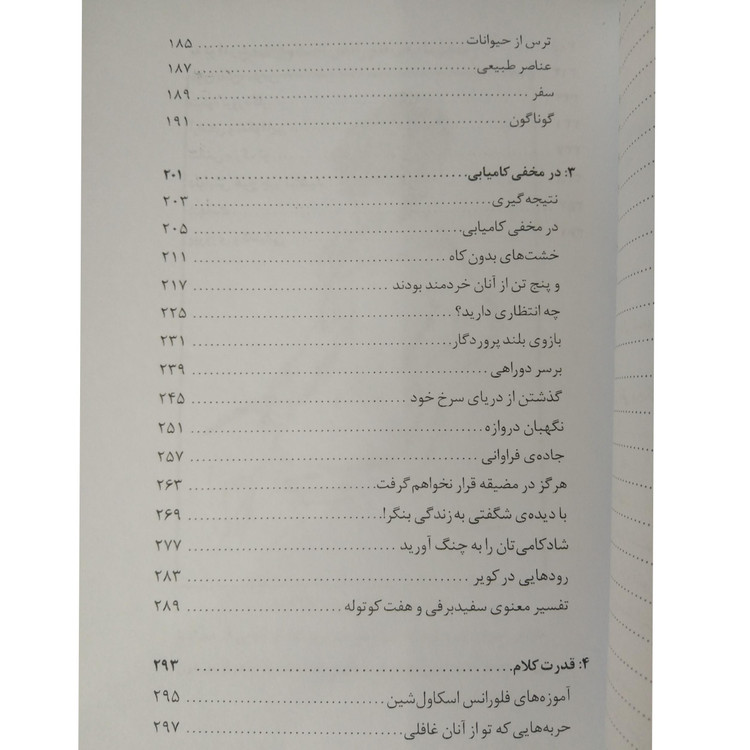 ترس از حیوانات ........................................ ۱۸۵
عناصر طبیعی ........................................ ۱۸۷
سفر ........................................ ۱۸۹
گوناگون ........................................ ۱۹۱
۳: در مخفی کامیابی ........................................ ۲۰۱
نتیجه‌گیری ........................................ ۲۰۳
در مخفی کامیابی ........................................ ۲۰۵
خشت‌های بدون کاه ........................................ ۲۱۱
و پنج تن از آنان خردمند بودند ........................................ ۲۱۷
چه انتظاری دارید؟ ........................................ ۲۲۵
بازوی بلند پروردگار ........................................ ۲۳۱
برسر دوراهی ........................................ ۲۳۹
گذشتن از دریای سرخ خود ........................................ ۲۴۵
نگهبان دروازه ........................................ ۲۵۱
جاده‌ی فراوانی ........................................ ۲۵۷
هرگز در مضیقه قرار نخواهم گرفت ........................................ ۲۶۳
با دیده‌ی شگفتی به زندگی بنگر! ........................................ ۲۶۹
شادکامی‌تان را به چنگ آورید ........................................ ۲۷۷
رودهایی در کویر ........................................ ۲۸۳
تفسیر معنوی سفیدبرفی و هفت کوتوله ........................................ ۲۸۹
۴: قدرت کلام ........................................ ۲۹۳
آموزه‌های فلورانس اسکاول‌شین ........................................ ۲۹۵
حربه‌هایی که تو از آنان غافلی ........................................ ۲۹۷